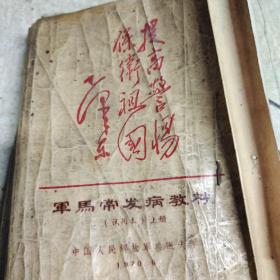 提高警惕
保衛祖國
毛泽东
軍馬常发病教材
(试用本) 上册
中国人民解放军
1970